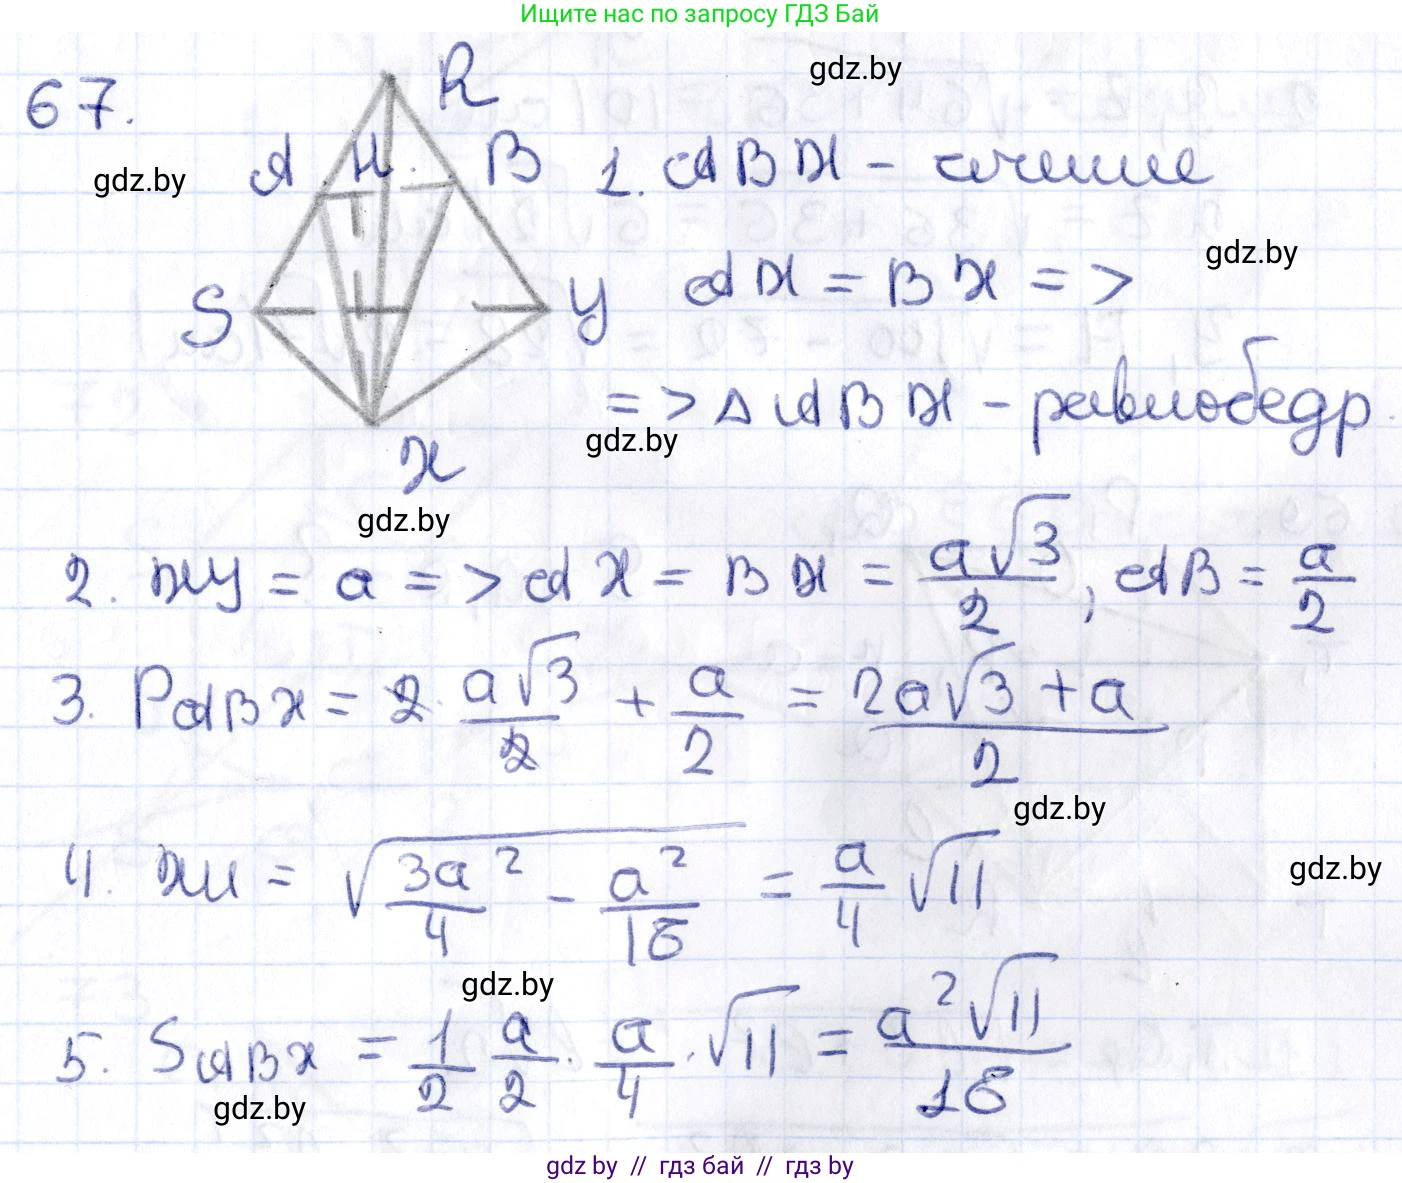 Ищите нас по запросу ГДЗ Бай
67.
R
gdz.by
A H B
1. ABX - сечение
gdz.by
gdz.by
S Y
AX = BX =>
=> Δ ABX - равнобедр.
gdz.by
X
gdz.by
2. XY = a => AX = BX = a√3/2, AB = a/2
3. P_ABX = 2 · a√3/2 + a/2 = 2a√3 + a/2
gdz.by
4. XH = √3a²/4 - a²/16 = a/4 √11
gdz.by
gdz.by
5. S_ABX = 1/2 a/2 · a/4 · √11 = a²√11/16
gdz.by
gdz.by
gdz by // гдз бай // гдз by